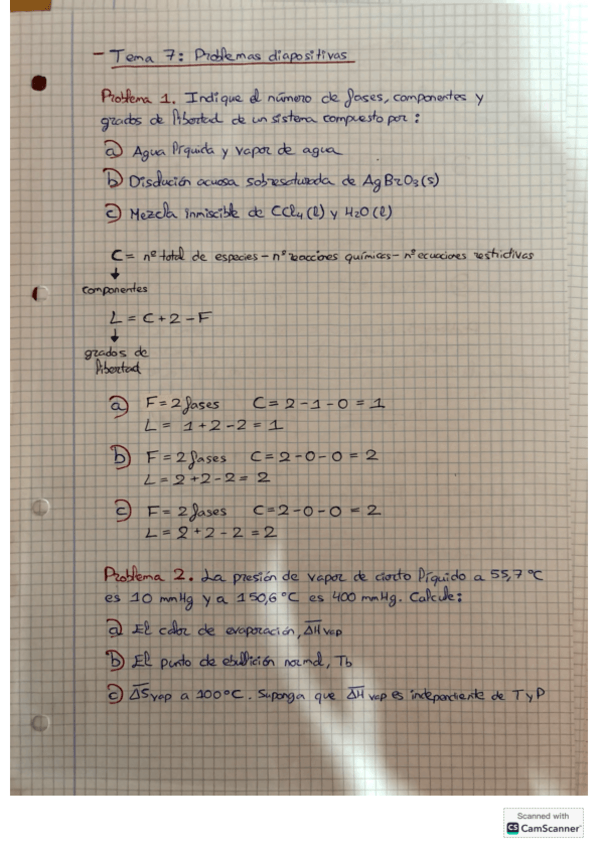 - Tema 7: Problemas diapositivas
Problema 1. Indique el número de fases, componentes y
grados de libertad de un sistema compuesto por:
a) Agua líquida y vapor de agua
b) Disolución acuosa sobresaturada de AgBrO3(s)
c) Mezcla inmiscible de CCl4(l) y H2O(l)
C = nº total de especies - nº reacciones químicas - nº ecuaciones restrictivas
↓
componentes
L = C + 2 - F
↓
grados de
libertad
a) F = 2 fases C = 2 - 1 - 0 = 1
L = 1 + 2 - 2 = 1
b) F = 2 fases C = 2 - 0 - 0 = 2
L = 2 + 2 - 2 = 2
c) F = 2 fases C = 2 - 0 - 0 = 2
L = 2 + 2 - 2 = 2
Problema 2. La presión de vapor de cierto líquido a 55,7 ºC
es 10 mmHg y a 150,6 ºC es 400 mmHg. Calcule:
a) El calor de evaporación, ΔH̅vap
b) El punto de ebullición normal, Tb
c) ΔS̅vap a 100ºC. Suponga que ΔH̅vap es independiente de T y P
Scanned with
CS CamScanner